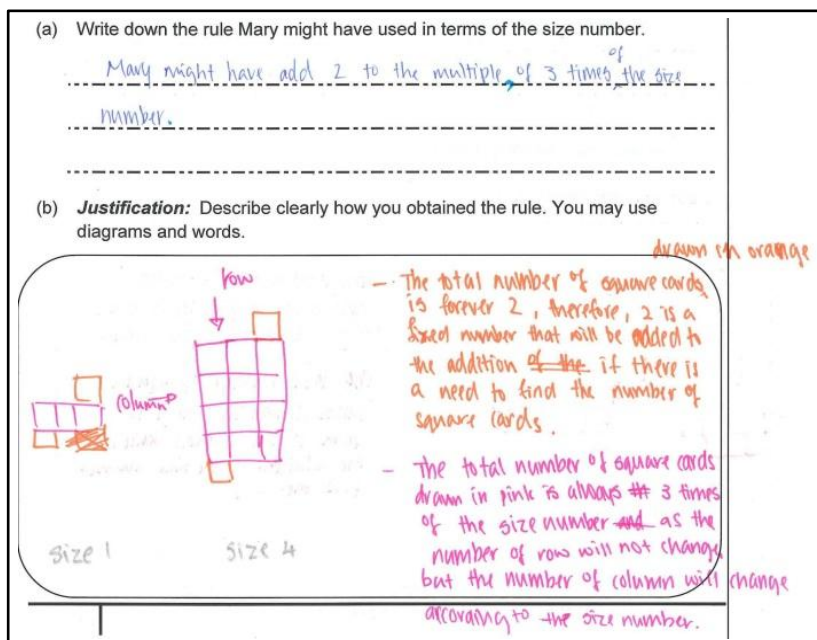 (a) Write down the rule Mary might have used in terms of the size number.
of
Mary might have add 2 to the multiple, of 3 times the size
number.
(b) Justification: Describe clearly how you obtained the rule. You may use
diagrams and words.
drawn in orange
row
column
size 1
size 4
- The total number of square cards
is forever 2, therefore, 2 is a
fixed number that will be added to
the addition of the if there is
a need to find the number of
square cards.
- The total number of square cards
drawn in pink is always 3 times
of the size number and as the
number of row will not change
but the number of column will change
according to the size number.